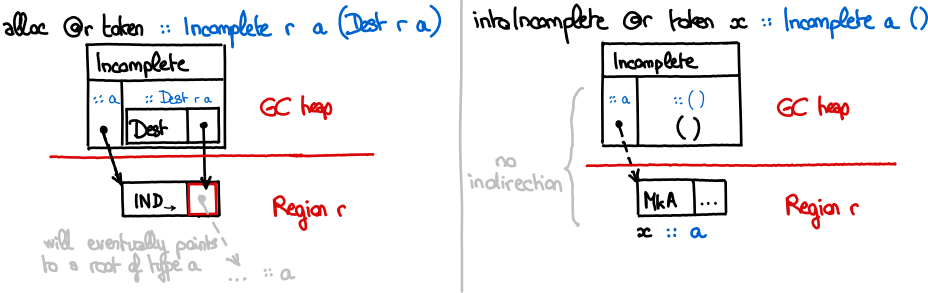 alloc @r token :: Incomplete r a (Dest r a)
Incomplete
:: a
:: Dest r a
Dest
GC heap
IND→
Region r
will eventually points
to a root of type a
... :: a
intoIncomplete @r token x :: Incomplete a ()
Incomplete
:: a
:: ()
()
GC heap
no
indirection
MkA
...
Region r
x :: a